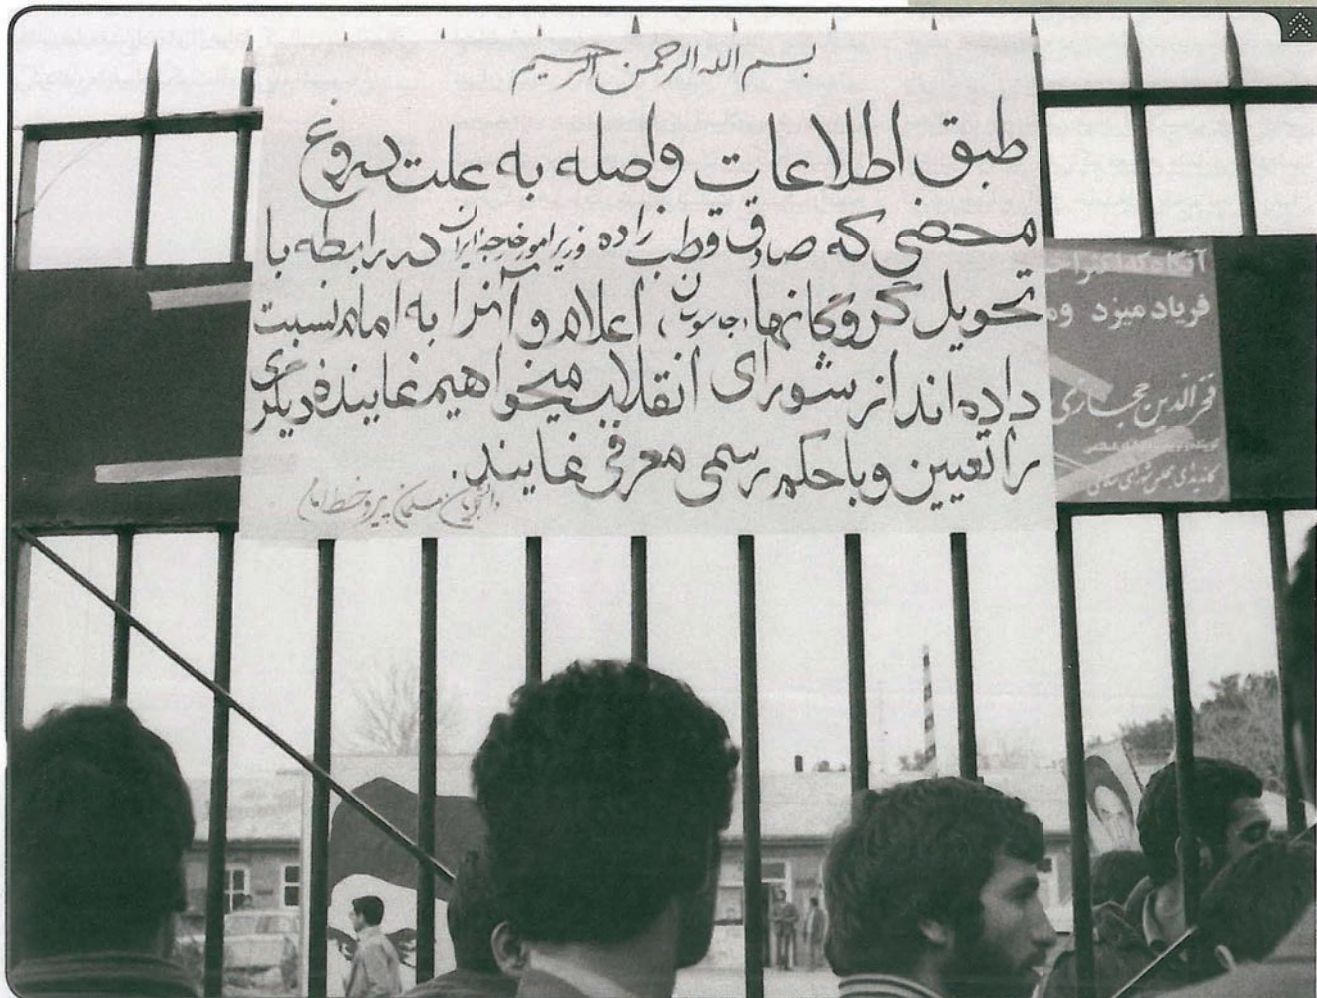 بسم الله الرحمن الرحیم
طبق اطلاعات واصله به علت دروغ
محضی که صادق قطب زاده وزیر امور خارجه ایران در رابطه با
تحویل گروگانها (جاسوسان) اعلام و آنرا به امام نسبت
داده اند از شورای انقلاب میخواهیم نماینده دیگری
را تعیین و با حکم رسمی معرفی نمایند.
دانشجویان مسلمان پیرو خط امام
آنگاه که
فریاد میزد
فخرالدین حجازی
کاندیدای مجلس شورای